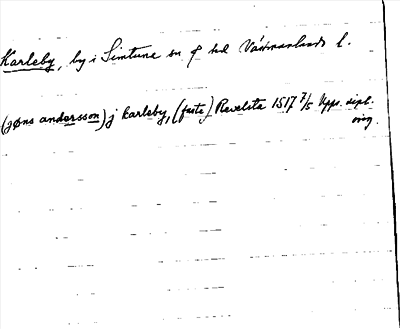 Karleby, by i Simtuna sn o hd Västmanlands l.
(jøns andersson) j karleby, (faste) Revelsta 1517 7/5 Upps. dipl. orig.